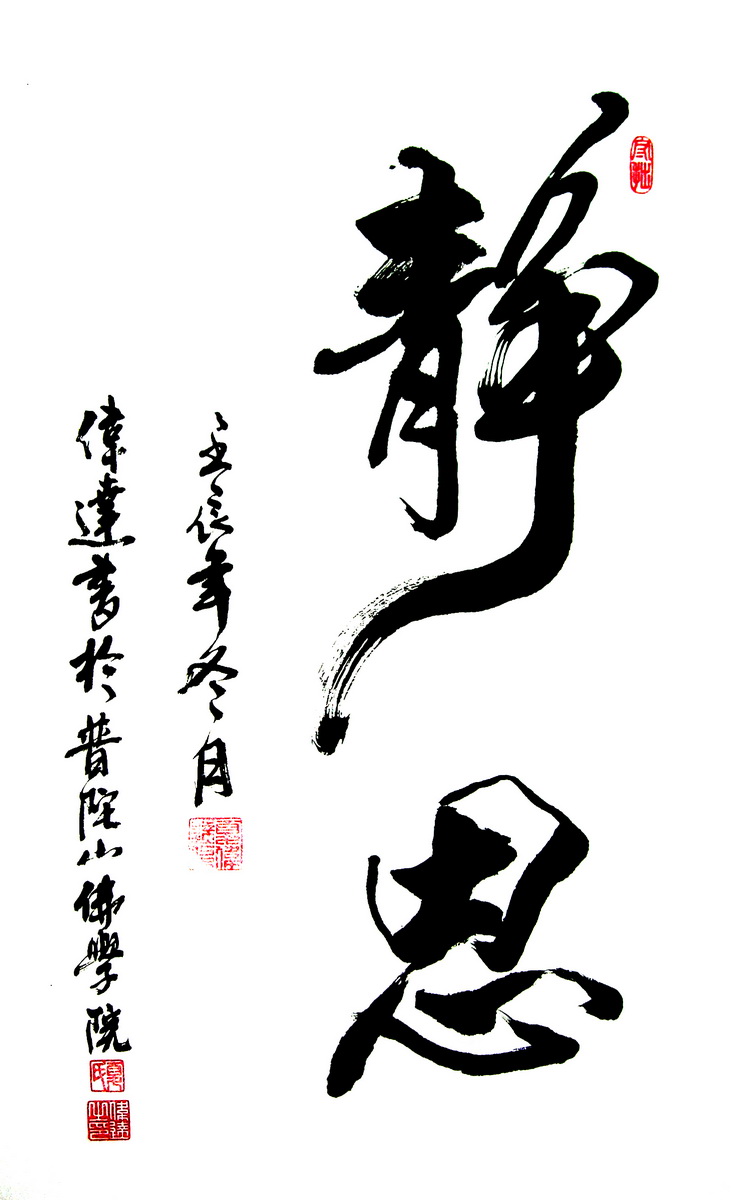 靜思
壬辰年冬月
偉達書於普陀山佛學院